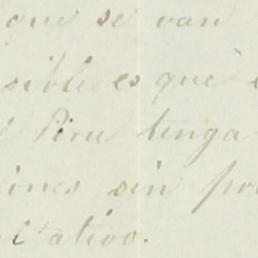 que se van
sible es que
Peru tenga
iones sin
ltativo.